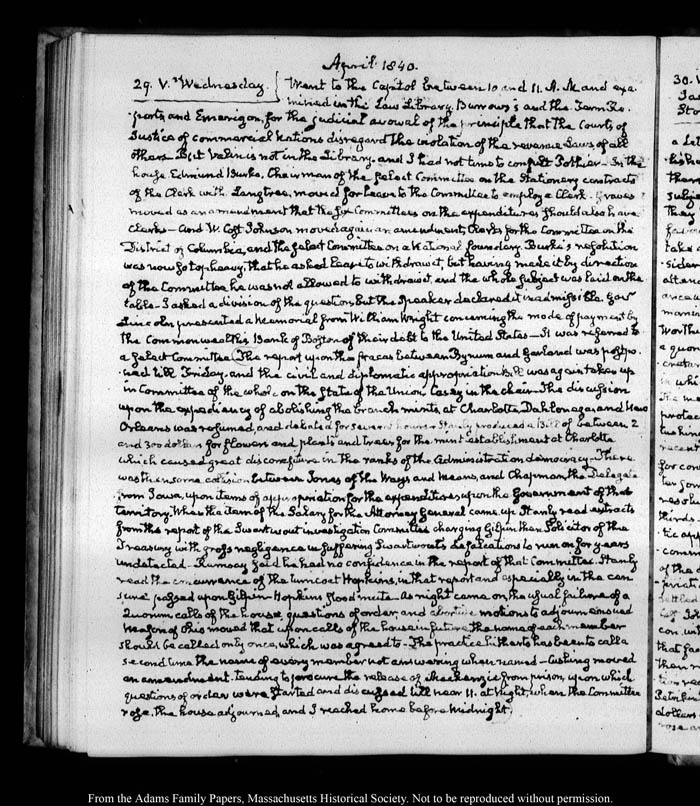 April 1840.
29. V. Wednesday. Went to the Capitol between 10 and 11. A.M. and exa-
mined in the Law Library, Burrow's and the Term Re-
ports, and Emerigon, for the judicial avowal of the principle that the Courts of
Justice of commercial Nations disregard the violation of the revenue Laws of all
others. But Valin is not in the Library, and I had not time to consult Pothier. In the
house Edmund Burke, Chairman of the select Committee on the Stationery contracts
of the Clerk with Langtree, moved for leave to the Committee to employ a Clerk. Graves
moved as an amendment that the six Committees on the expenditures should also have
Clerks — And W. Cost Johnson moved again an amendment, Clerks for the Committee on the
District of Columbia, and the select Committee on a National foundery. Burke's resolution
was now so top heavy, that he asked leave to withdraw it, but having made it by direction
of the Committee he was not allowed to withdraw it, and the whole subject was laid on the
table. I asked a division of the question, but the Speaker declared it inadmissible. Gov
Lincoln presented a Memorial from William Wright concerning the mode of payment by
the Commonwealth's Bank of Boston of their debt to the United States — It was referred to
a select Committee. The report upon the fracas between Bynum and Garland was postpo-
ned till Friday, and the civil and diplomatic appropriation Bill was again taken up
in Committee of the whole on the State of the Union, Casey in the chair. The discussion
upon the expediency of abolishing the branch mints, at Charlotte, Dahlonega, and New
Orleans was resumed, and debated for several hours. Stanly produced a Bill of between 2
and 300 dollars for flowers and plants and trees for the mint establishment at Charlotte
which caused great discomfiture in the ranks of the Administration democracy. There
was then some collision between Jones of the Ways and Means, and Chapman, the Delegate
from Iowa, upon items of appropriation for the expenditures upon the Government of that
territory. When the item of the Salary for the Attorney General came up Stanly read extracts
from the report of the Swartwout investigation Committee charging Gilpin then Solicitor of the
Treasury with gross negligence in suffering Swartwout's defalcations to run on for years
undetected. Ramsay said he had no confidence in the report of that Committee. Stanly
read the concurrence of the turncoat Hopkins, in that report and especially in the cen-
sure passed upon Gilpin. Hopkins stood mute. As night came on, the usual failure of a
Quorum, calls of the house, questions of order, and abortive motions to adjourn ensued
of Ohio moved that upon calls of the house in future the name of each member
should be called only once, which was agreed to. The practice hitherto has been to call a
second time the name of every member not answering when named — Cushing moved
an amendment. tending to procure the release of Mackenzie from prison, upon which
questions of order were started and discussed till near 11. at Night, when the Committee
rose, the house adjourned, and I reached home before midnight.
30.
From the Adams Family Papers, Massachusetts Historical Society. Not to be reproduced without permission.